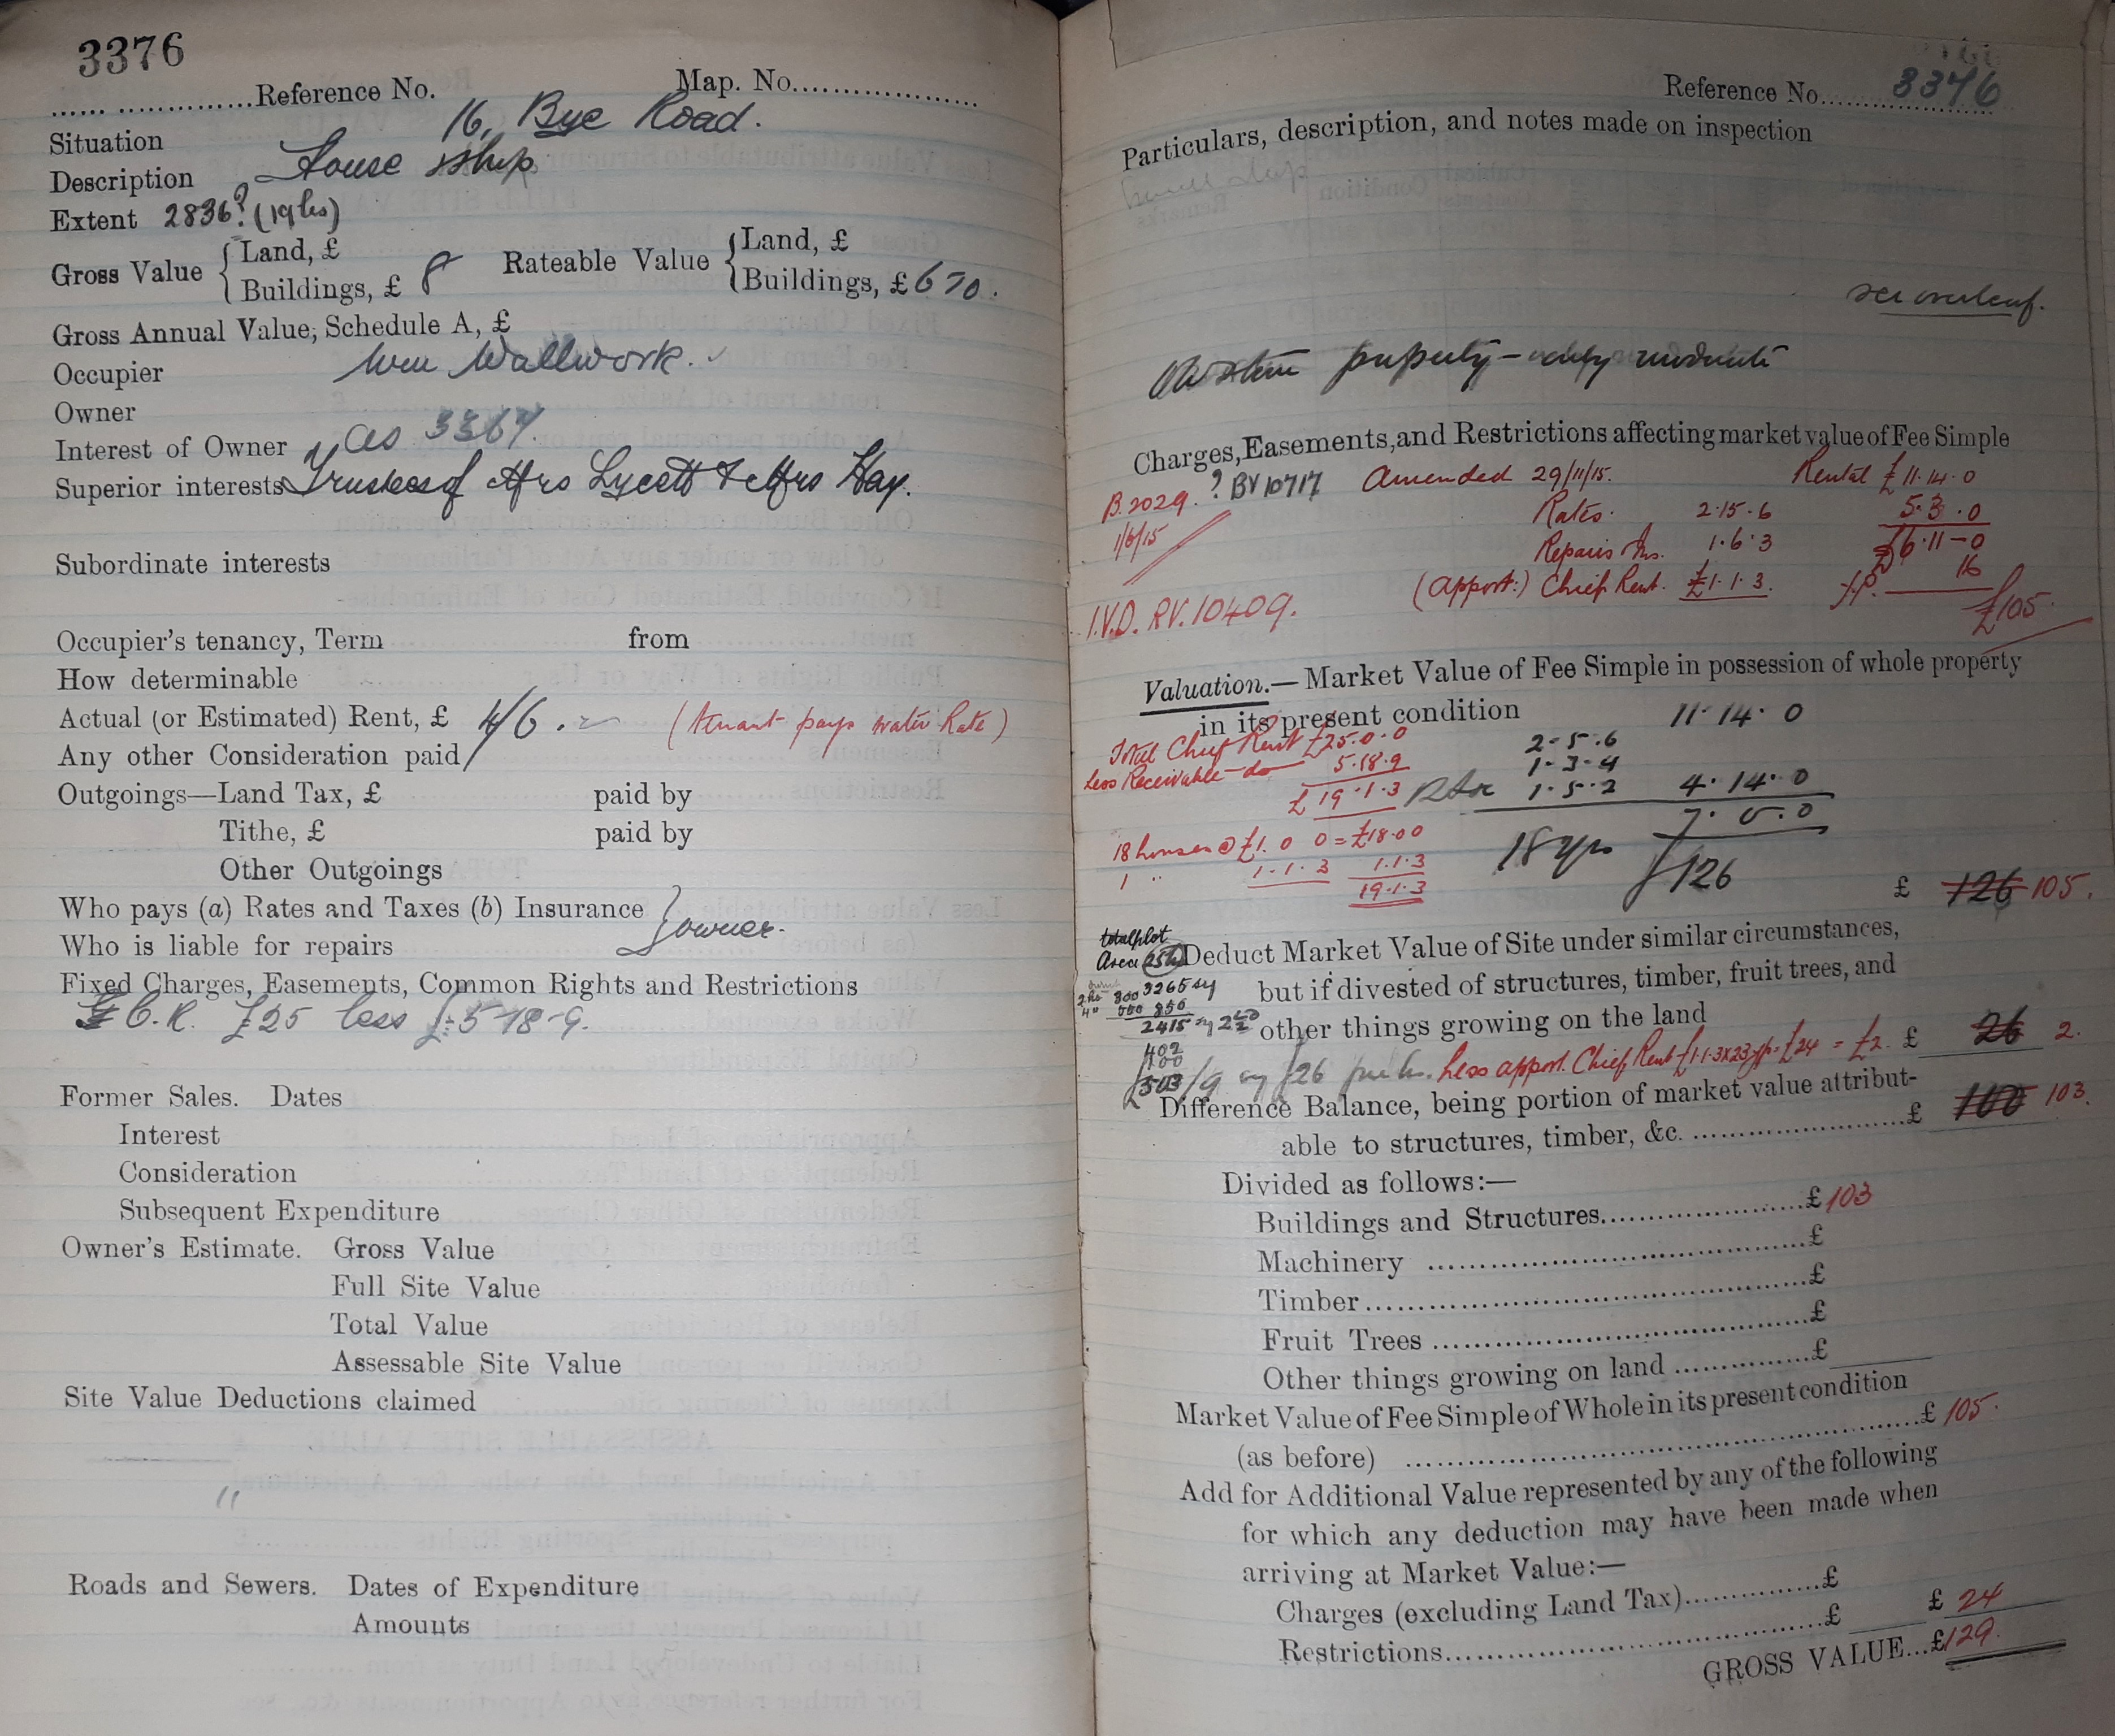 3376
Reference No. Map. No.
Situation 16, Bye Road.
Description House & shop
Extent 2836? (19 hs)
Gross Value { Land, £
Buildings, £ 8
Rateable Value { Land, £
Buildings, £ 6 10.
Gross Annual Value, Schedule A, £
Occupier Wm Wallwork.
Owner
Interest of Owner as 3364.
Superior interests Trustees of Mrs Lycett & Mrs Hay.
Subordinate interests
Occupier's tenancy, Term from
How determinable
Actual (or Estimated) Rent, £ 4/6. (tenant pays water Rate)
Any other Consideration paid
Outgoings—Land Tax, £ paid by
Tithe, £ paid by
Other Outgoings
Who pays (a) Rates and Taxes (b) Insurance } owner.
Who is liable for repairs
Fixed Charges, Easements, Common Rights and Restrictions
C.R. £25 less £5-18-9.
Former Sales. Dates
Interest
Consideration
Subsequent Expenditure
Owner's Estimate. Gross Value
Full Site Value
Total Value
Assessable Site Value
Site Value Deductions claimed
"
Roads and Sewers. Dates of Expenditure
Amounts
Reference No. 3376
Particulars, description, and notes made on inspection
house & shop
see overleaf.
property – very moderate
Charges, Easements, and Restrictions affecting market value of Fee Simple
B. 2029. ? BV 10717 Amended 29/11/15. Rental £11.14.0
1/6/15 Rates. 2.15.6 5.3.0
Repairs Ins. 1.6.3 £6.11-0
(Apport:) Chief Rent. £1.1.3. yp. 16
I.V.D. RV. 10409. £105
Valuation.— Market Value of Fee Simple in possession of whole property
in its present condition 11.14.0
Total Chief Rent £25.0.0 2-5.6
Less Receivable do 5.18.9 1-3-4
£19.1.3 1.5.2 4.14.0
7.0.0
18 houses @ £1.0 0 = £18.0 0 18 yps
1 " 1.1.3 1.1.3 £126
19.1.3
£ 126 105.
total plot
Area
Deduct Market Value of Site under similar circumstances,
3265 sy but if divested of structures, timber, fruit trees, and
850
2415 other things growing on the land £ 26 2.
402
100
£503 /19 £26 Less apport. Chief Rent £1.1.3 x 23 yp = £24 = £2.
Difference Balance, being portion of market value attribut-
able to structures, timber, &c. £ 100 103.
Divided as follows:—
Buildings and Structures £ 103
Machinery £
Timber £
Fruit Trees £
Other things growing on land £
Market Value of Fee Simple of Whole in its present condition
(as before) £ 105.
Add for Additional Value represented by any of the following
for which any deduction may have been made when
arriving at Market Value:—
Charges (excluding Land Tax) £
Restrictions £ £ 24
GROSS VALUE...£ 129.